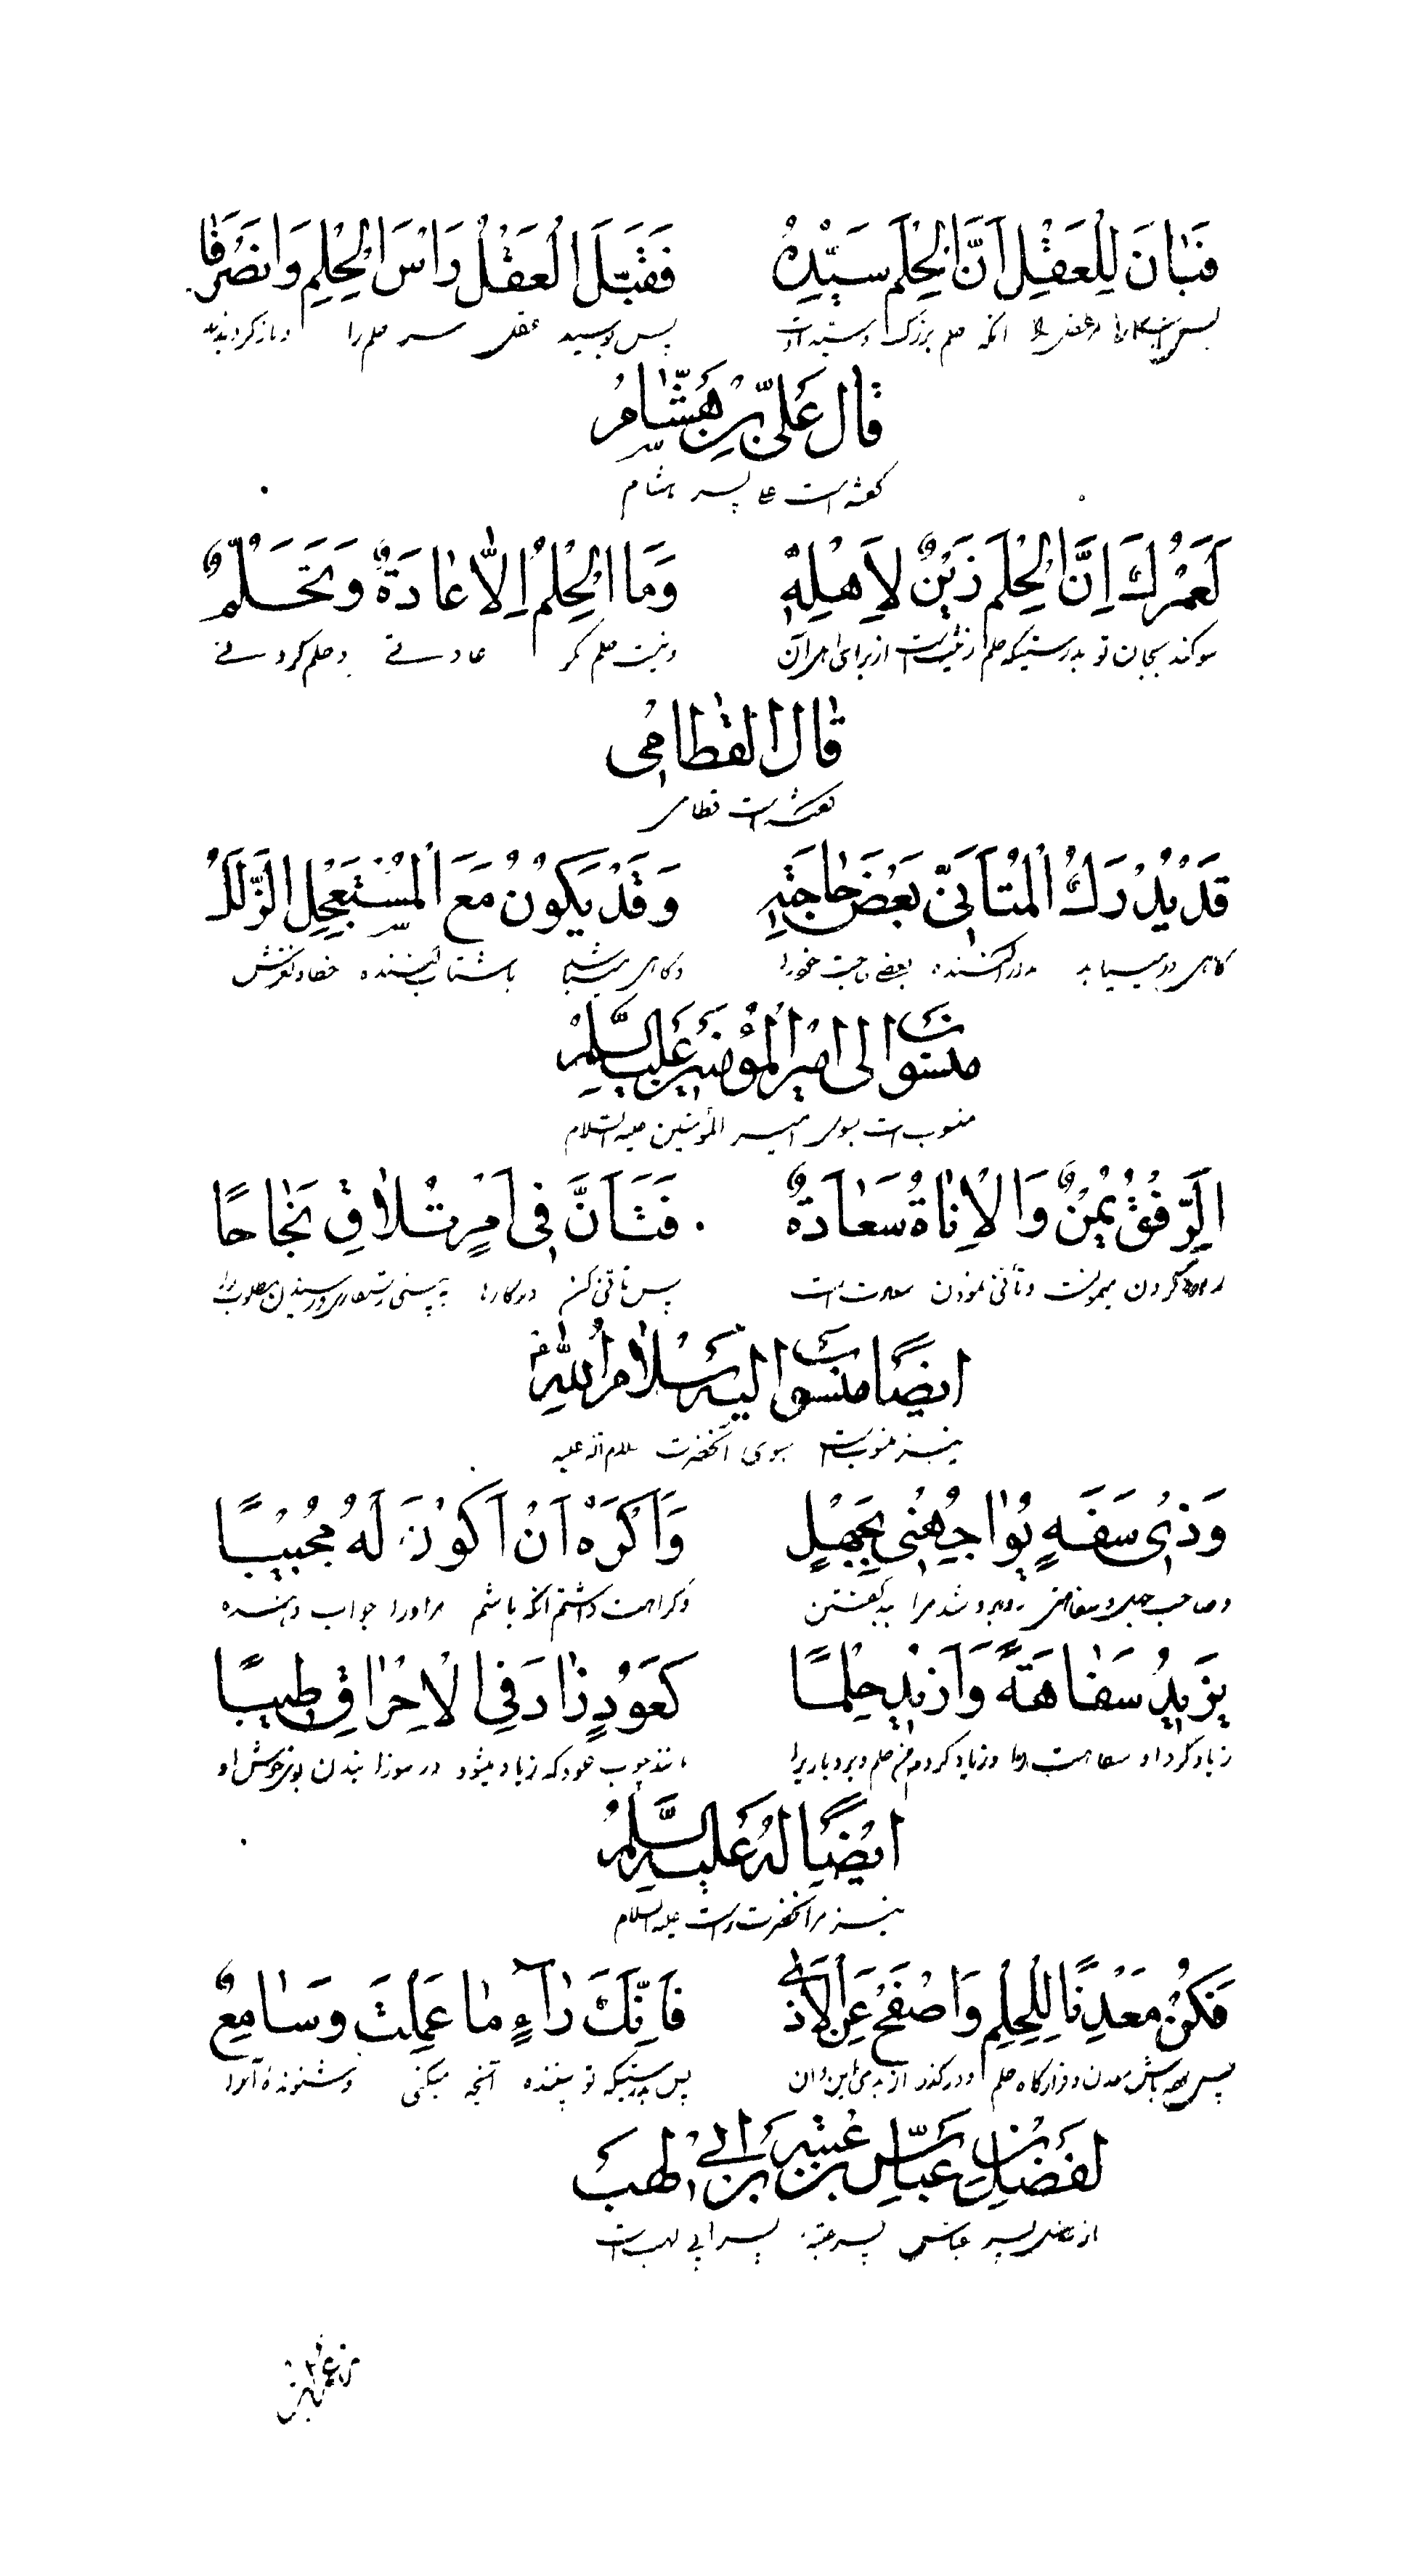 فَبٰانَ لِلْعَقْلِ اَنَّ الْحِلْمَ سَيِّدُهُ فَقَبَّلَ الْعَقْلُ رَاْسَ الْحِلْمِ وَانْصَرَفٰا
پس بوسید عقل سر حلم را و بازگردیدند
قٰالَ عَلِىُّ بْنُ هِشٰامٍ
گفته است علی پسر هشام
لَعَمْرُكَ اِنَّ الْحِلْمَ زَيْنٌ لِاَهْلِهِ وَمَا الْحِلْمُ اِلّٰا عٰادَةٌ وَتَحَلُّمٌ
سوگند بجان تو بدرستیکه حلم زینت است از برای اهل آن و نیست حلم مگر عادتی و حلم کردنی
قٰالَ الْقُطٰامِى
گفته است قطامی
قَدْ يُدْرِكُ الْمُتَاَنِّى بَعْضَ حٰاجَتِهِ وَقَدْ يَكُوْنُ مَعَ الْمُسْتَعْجِلِ الزَّلَلُ
گاهی درمییابد درنگ کننده بعضی حاجت خود را و گاهی میباشد با شتاب کننده خطا و لغزش
مَنْسُوبٌ اِلى اَمِيرِ الْمُؤْمِنِينَ عَلَيْهِ السَّلٰمُ
منسوب است بسوی امیر المؤمنین علیه السّلام
اَلرِّفْقُ يُمْنٌ وَالْاِنٰاةُ سَعٰادَةٌ فَتَاَنَّ فِى اَمْرٍ تُلٰاقِ نَجٰاحًا
کردن میمونست و تأنّی نمودن سعادت است پس تأنّی کن در کارها
اَيْضًا مَنْسُوبٌ اِلَيْهِ سَلٰامُ اللّٰهِ
نیز منسوبست بسوی آنحضرت سلام الله علیه
وَذِى سَفَهٍ يُوٰاجِهُنِى بِجَهْلٍ وَاَكْرَهُ اَنْ اَكُوْنَ لَهُ مُجِيْبًا
و صاحب جهل و سفاهتی روبرو شد مرا ببد گفتن و کراهت داشتم آنکه باشم مر او را جواب دهنده
يَزِيدُ سَفٰاهَةً وَاَزِيْدُ حِلْمًا كَعُوْدٍ زٰادَ فِى الْاِحْرٰاقِ طِيبًا
زیاد کرد او سفاهت را و زیاد کردم من حلم و بردباری را مانند چوب عود که زیاد میشود در سوزانیدن بوی خوش او
اَيْضًا لَهُ عَلَيْهِ السَّلٰمُ
نیز مر آنحضرت راست علیه السلام
فَكُنْ مَعْدِنًا لِلْحِلْمِ وَاصْفَحْ عَنِ الْاَذٰى فَاِنَّكَ رٰآءٍ مٰا عَمِلْتَ وَسٰامِعٌ
پس باش معدن و قرارگاه حلم و درگذر از بدی این و آن پس بدرستیکه تو بیننده آنچه میکنی و شنونده آنرا
لِفَضْلِ بْنِ عَبّٰاسِ بْنِ عُتْبَةَ بْنِ اَبِى لَهَبٍ
از فضل پسر عباس پسر عتبه پسر ابی لهب است